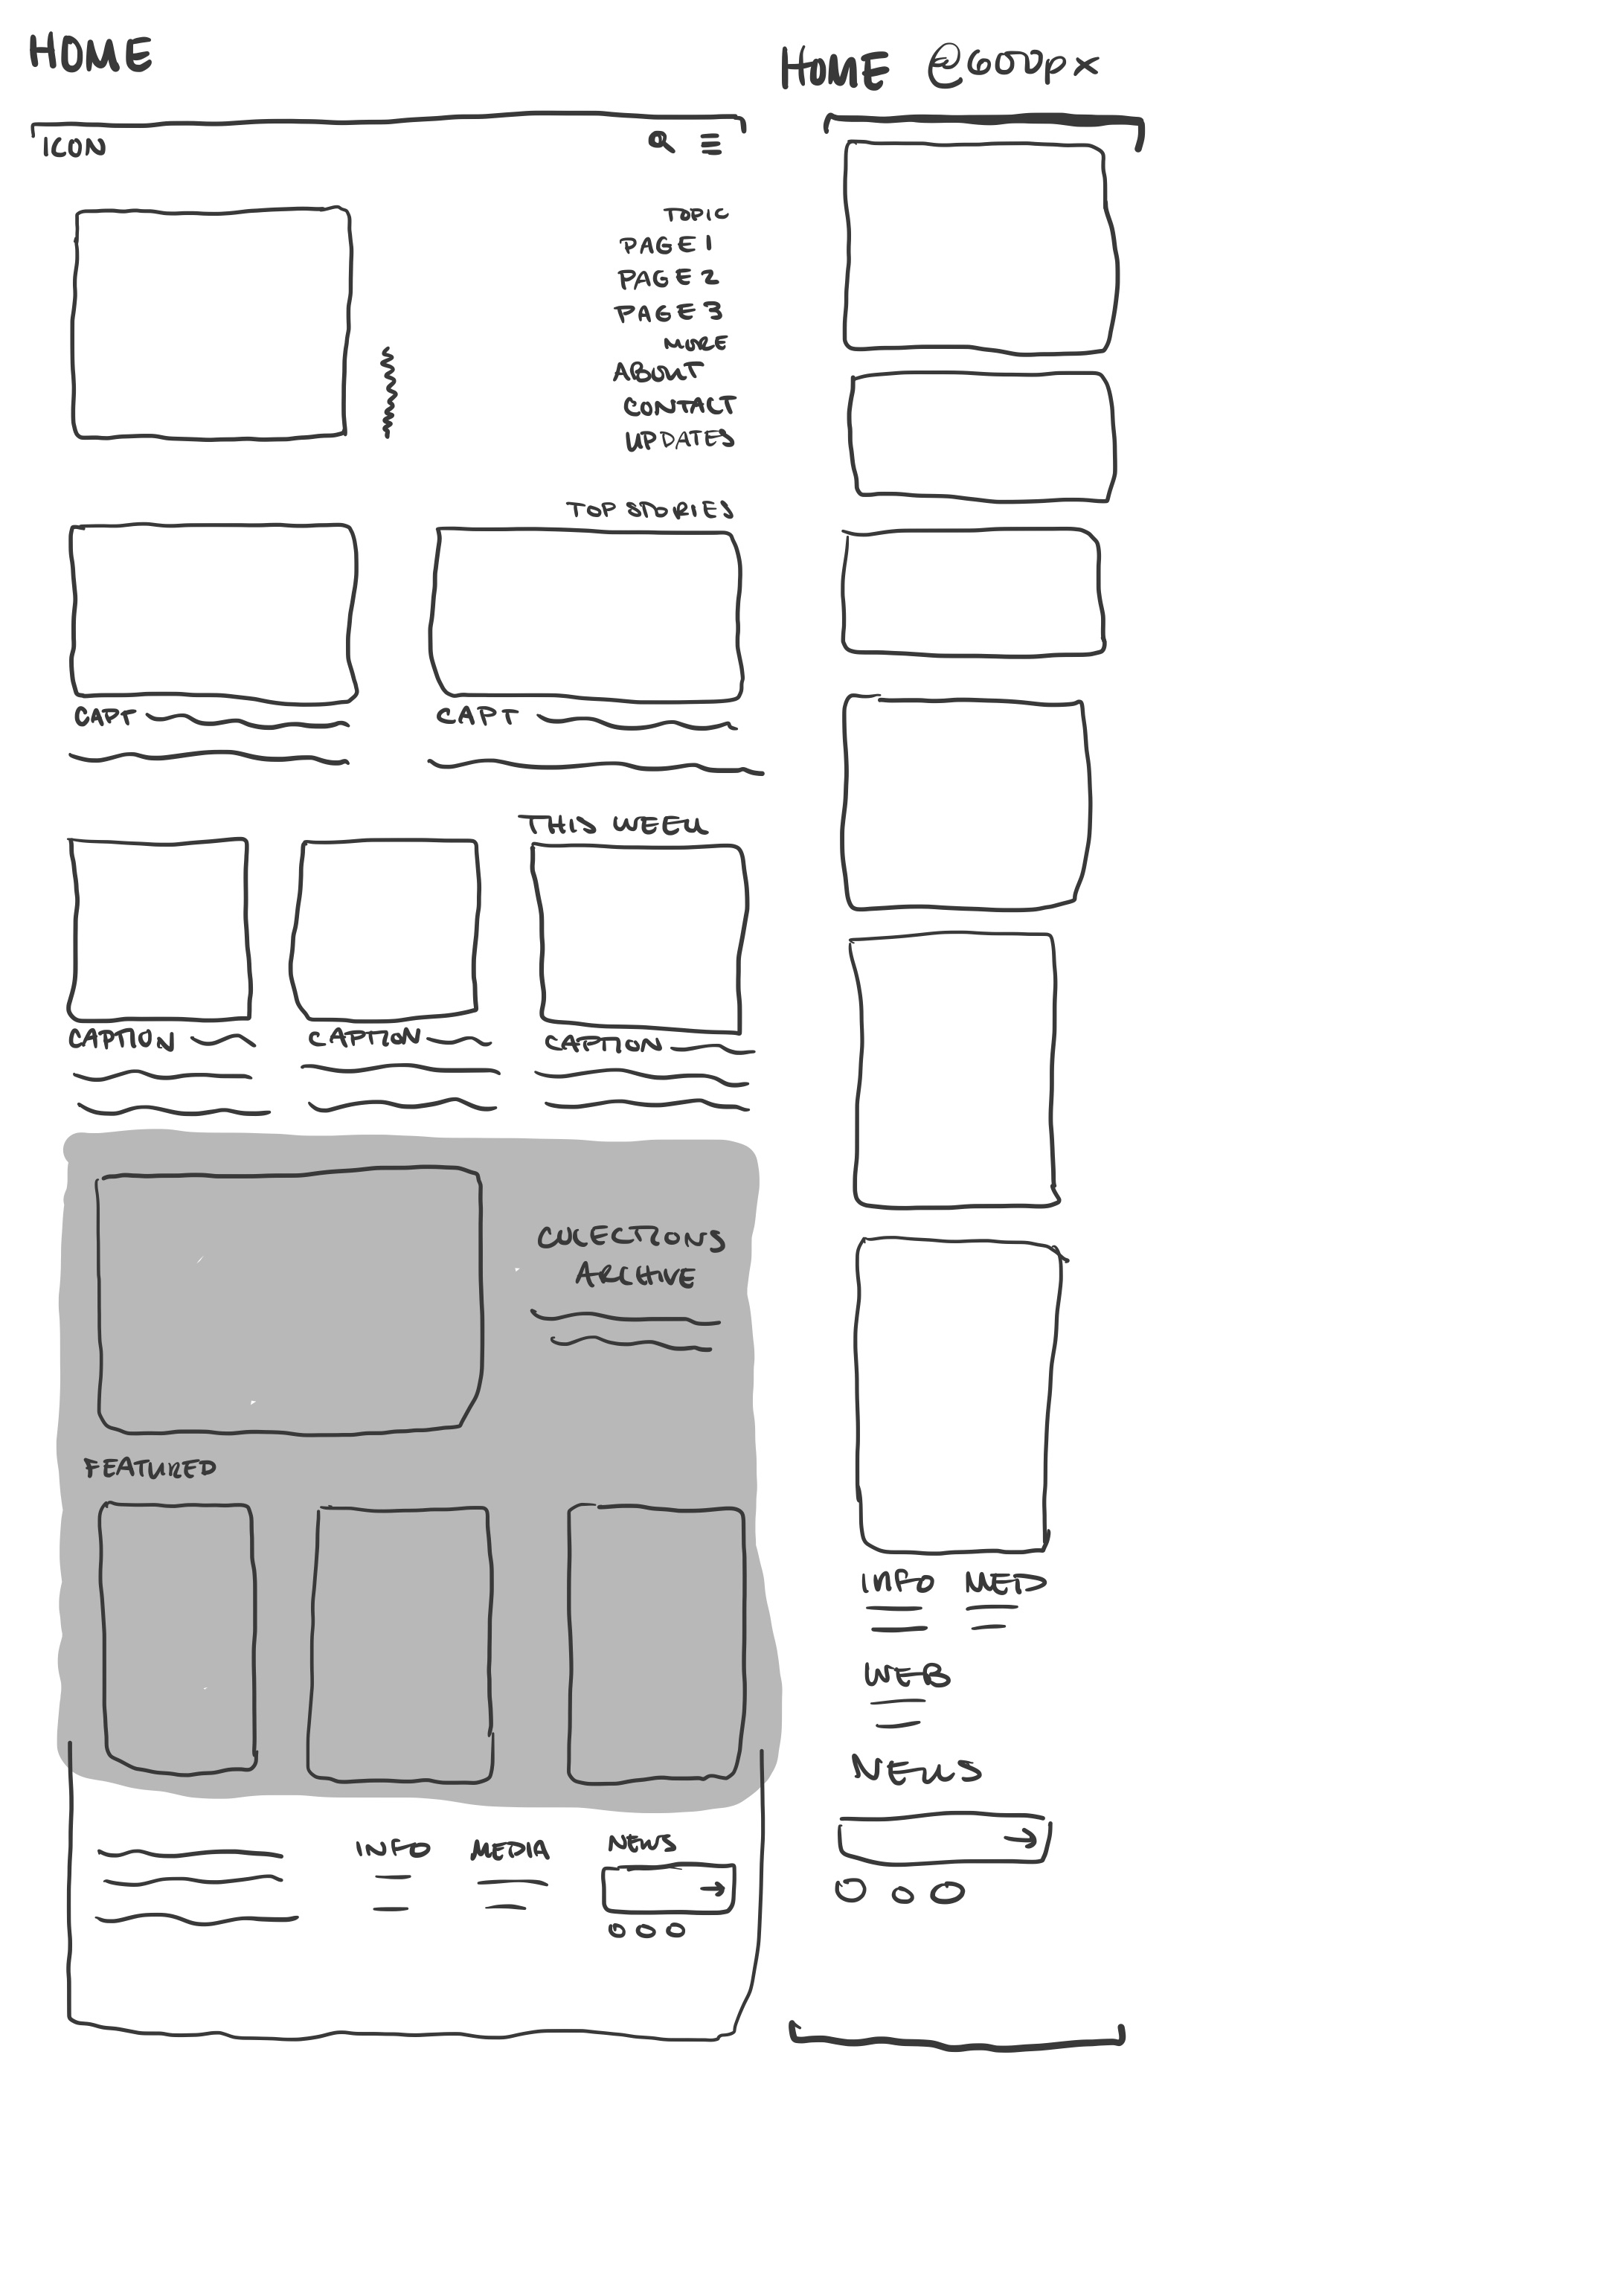 HOME
ICON
TOPIC
PAGE 1
PAGE 2
PAGE 3
MORE
ABOUT
CONTACT
UPDATES
TOP STORIES
CAPT
CAPT
THIS WEEK
CAPTION
CAPTION
CAPTION
COLLECTIONS
ARCHIVE
FEATURED
INFO
MEDIA
NEWS
HOME @600px
INFO MED
WEB
NEWS